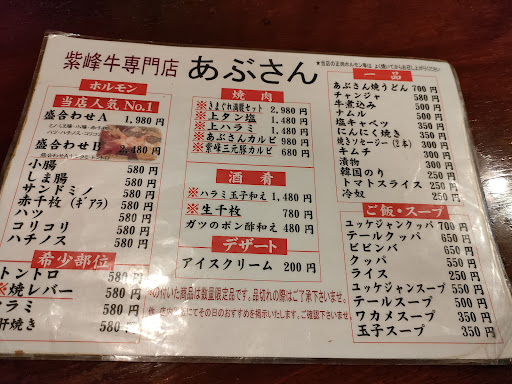 紫峰牛専門店 あぶさん
ホルモン
当店人気 No.1
盛合わせA 1,980 円
盛合わせB 2,480 円
小腸 580 円
しま腸 580 円
サンドミノ 580 円
赤千枚(ギアラ) 580 円
ハツ 580 円
コリコリ 580 円
ハチノス 580 円
希少部位
トントロ 580 円
※焼レバー 580 円
ハラミ 580 円
肝焼き 580 円
焼肉
※きまぐれ満載セット 2,980 円
※上タン塩 1,480 円
※上ハラミ 1,480 円
※あぶさんカルビ 980 円
※紫峰三元豚カルビ 680 円
酒肴
※ハラミ玉子和え 1,480 円
※生千枚 780 円
ガツのポン酢和え 580 円
デザート
アイスクリーム 200 円
※の付いた商品は数量限定品です。品切れの際はご了承下さいませ。
一品
あぶさん焼うどん 700 円
チャンジャ 580 円
牛煮込み 580 円
ナムル 500 円
塩キャベツ 350 円
にんにく焼き 350 円
焼きソーセージ(2本) 350 円
キムチ 350 円
漬物 350 円
韓国のり 250 円
トマトスライス 350 円
冷奴 250 円
ご飯・スープ
ユッケジャンクッパ 700 円
テールクッパ 650 円
ビビンバ 650 円
クッパ 550 円
ライス 250 円
ユッケジャンスープ 550 円
テールスープ 500 円
ワカメスープ 350 円
玉子スープ 350 円